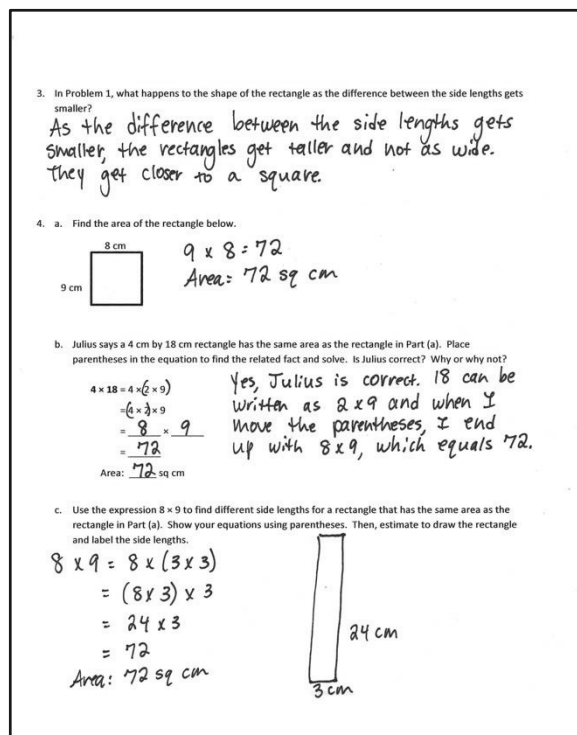 3. In Problem 1, what happens to the shape of the rectangle as the difference between the side lengths gets
smaller?
As the difference between the side lengths gets
smaller, the rectangles get taller and not as wide.
They get closer to a square.
4. a. Find the area of the rectangle below.
8 cm
9 cm
9 x 8 = 72
Area: 72 sq cm
b. Julius says a 4 cm by 18 cm rectangle has the same area as the rectangle in Part (a). Place
parentheses in the equation to find the related fact and solve. Is Julius correct? Why or why not?
4 × 18 = 4 × (2 × 9)
= (4 × 2) × 9
= 8 × 9
= 72
Area: 72 sq cm
Yes, Julius is correct. 18 can be
written as 2 x 9 and when I
move the parentheses, I end
up with 8 x 9, which equals 72.
c. Use the expression 8 × 9 to find different side lengths for a rectangle that has the same area as the
rectangle in Part (a). Show your equations using parentheses. Then, estimate to draw the rectangle
and label the side lengths.
8 x 9 = 8 x (3 x 3)
= (8 x 3) x 3
= 24 x 3
= 72
Area: 72 sq cm
24 cm
3 cm